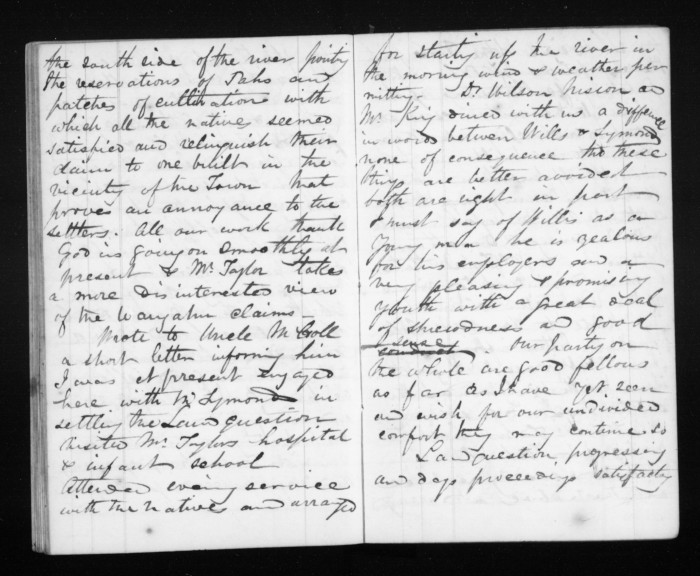 the south side of the river pointg
the reservations of Pahs and
patches of cultivations with
which all the native seemed
satisfied and relinquish their
claim to one built in the
vicinity of the Town that
proves an annoyance to the
settlers. All our work thank
God is going on smoothly at
present & Mr. Taylor takes
a more disinterested view
of the Wangahu claims -
Wrote to Uncle
a short letter informg him
I was at present engaged
here with Mr Symonds in
settling the Land question
Visited Mr. Taylors hospital
& infant school
Attended eveing service
with the natives and arranged
for starting up the river in
the morning wind & weather per
mitting. Dr Wilson Nixon and
Mr King dined with us a difference
in words between Wills & Symonds
none of consequence tho these
things are better avoided
both are right in part
I must say of Willis as a
young man he is zealous
for his employers and a
very pleasing & promising
youth with a great deal
of shrewdness and good
sense
conduct. our party on
the whole are good fellows
as far as I have yet seen
and wish for our undivided
comfort they may continue so
Land question progressing
and days proceedings satisfacty